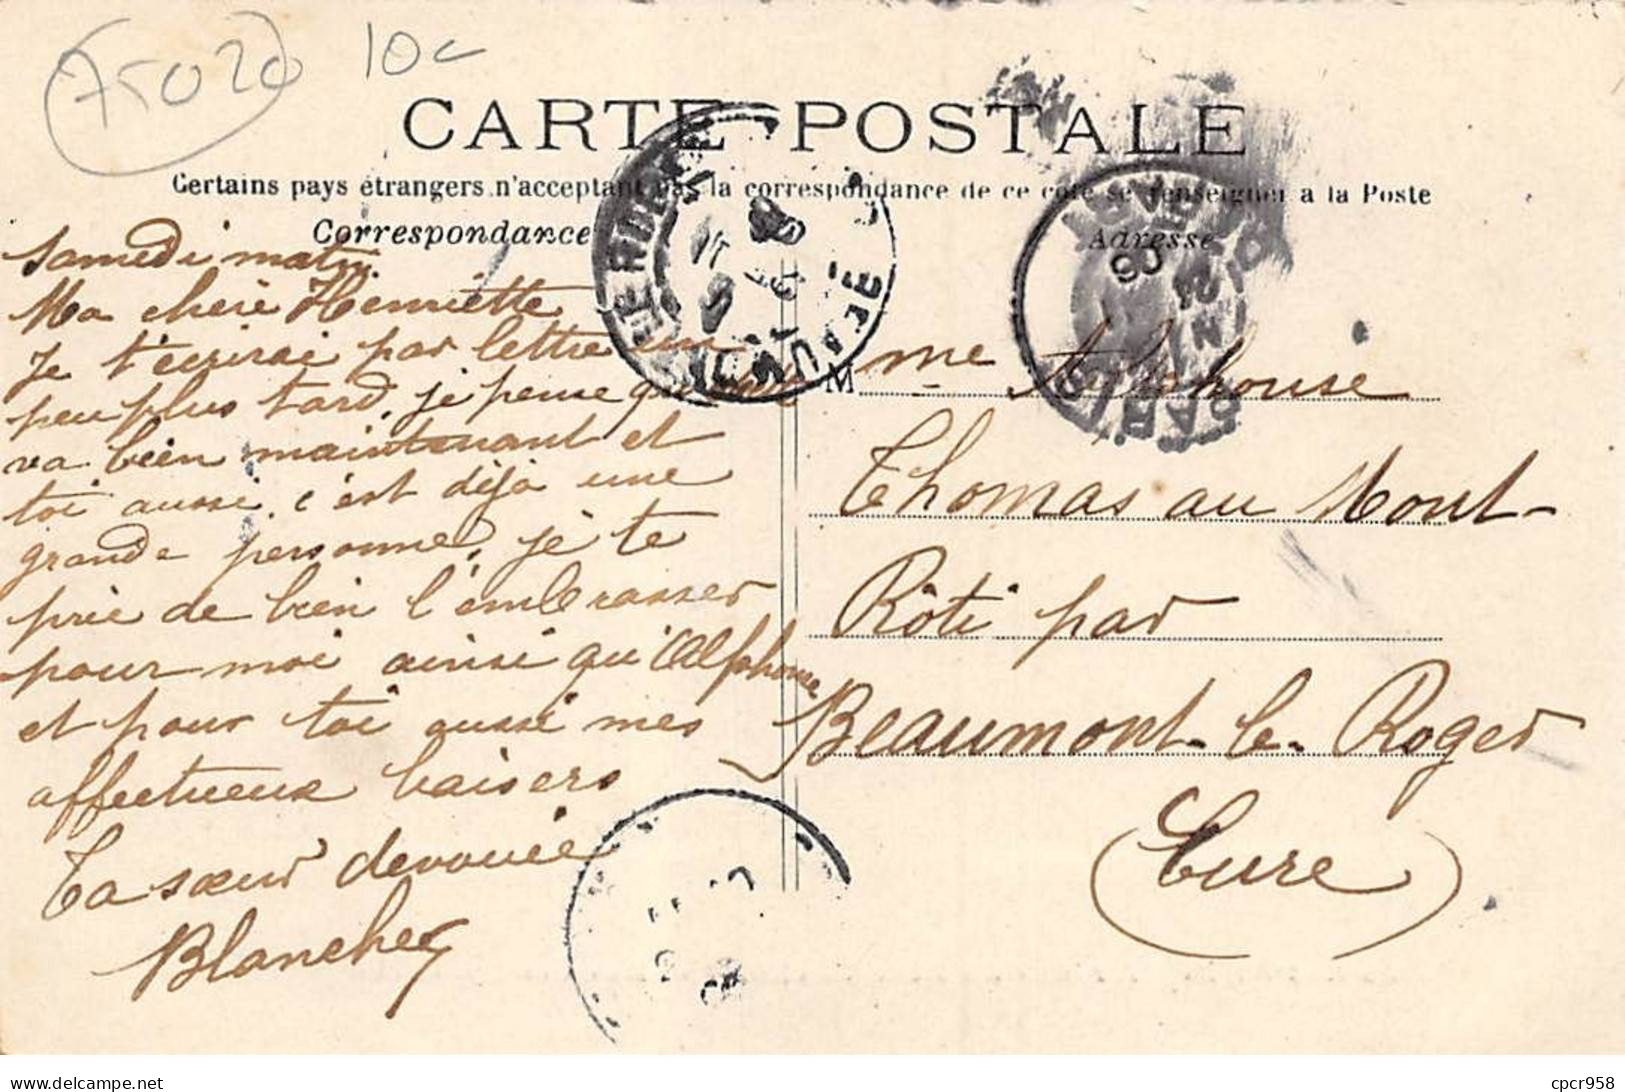 75020 10c
CARTE POSTALE
Certains pays étrangers n'acceptant pas la correspondance de ce côté se renseigner à la Poste
Correspondance
Adresse
Samedi matin
Ma chère Henriette
Je t'écrirai par lettre un
peu plus tard, je pense que tout
va bien maintenant et
toi aussi, c'est déjà une
grande personne, je te
prie de bien l'embrasser
pour moi ainsi qu'Alphonse
et pour toi aussi mes
affectueux baisers
Ta sœur dévouée
Blanche
M me Alphonse
Thomas au Mont-
Rôti par
Beaumont-le-Roger
(Eure)
BEAUMONT
LE ROGER
PARIS
delcampe.net
cpcr958